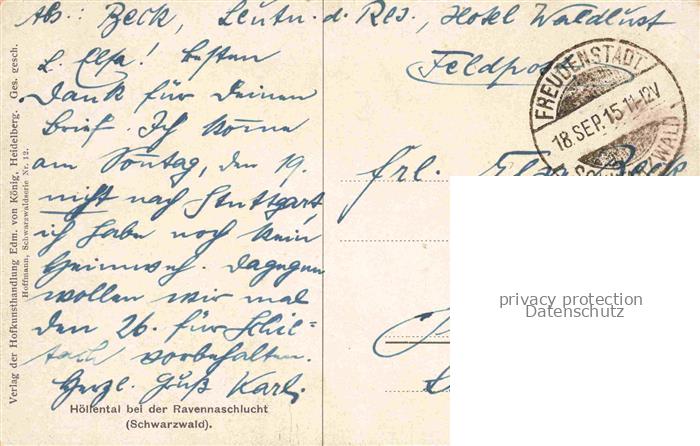 Abs.: Beck, Leutn. d. Res., Hotel Waldlust
Feldpost
L. Elsa! Besten
Dank für Deinen
Brief. Ich kom̄e
am Son̄tag, den 19.
nicht nach Stuttgart,
ich habe noch kein
Heimweh. Dagegen
wollen wir mal
den 26. für Schil=
tach vorbehalten.
Herzl. Gruß Karl.
Frl. Elsa Beck
FREUDENSTADT
18 SEP. 15 11-12V
Verlag der Hofkunsthandlung Edm. von König, Heidelberg. Ges. gesch.
Hoffmann, Schwarzwaldserie Nr. 12.
Höllental bei der Ravennaschlucht
(Schwarzwald).
privacy protection
Datenschutz